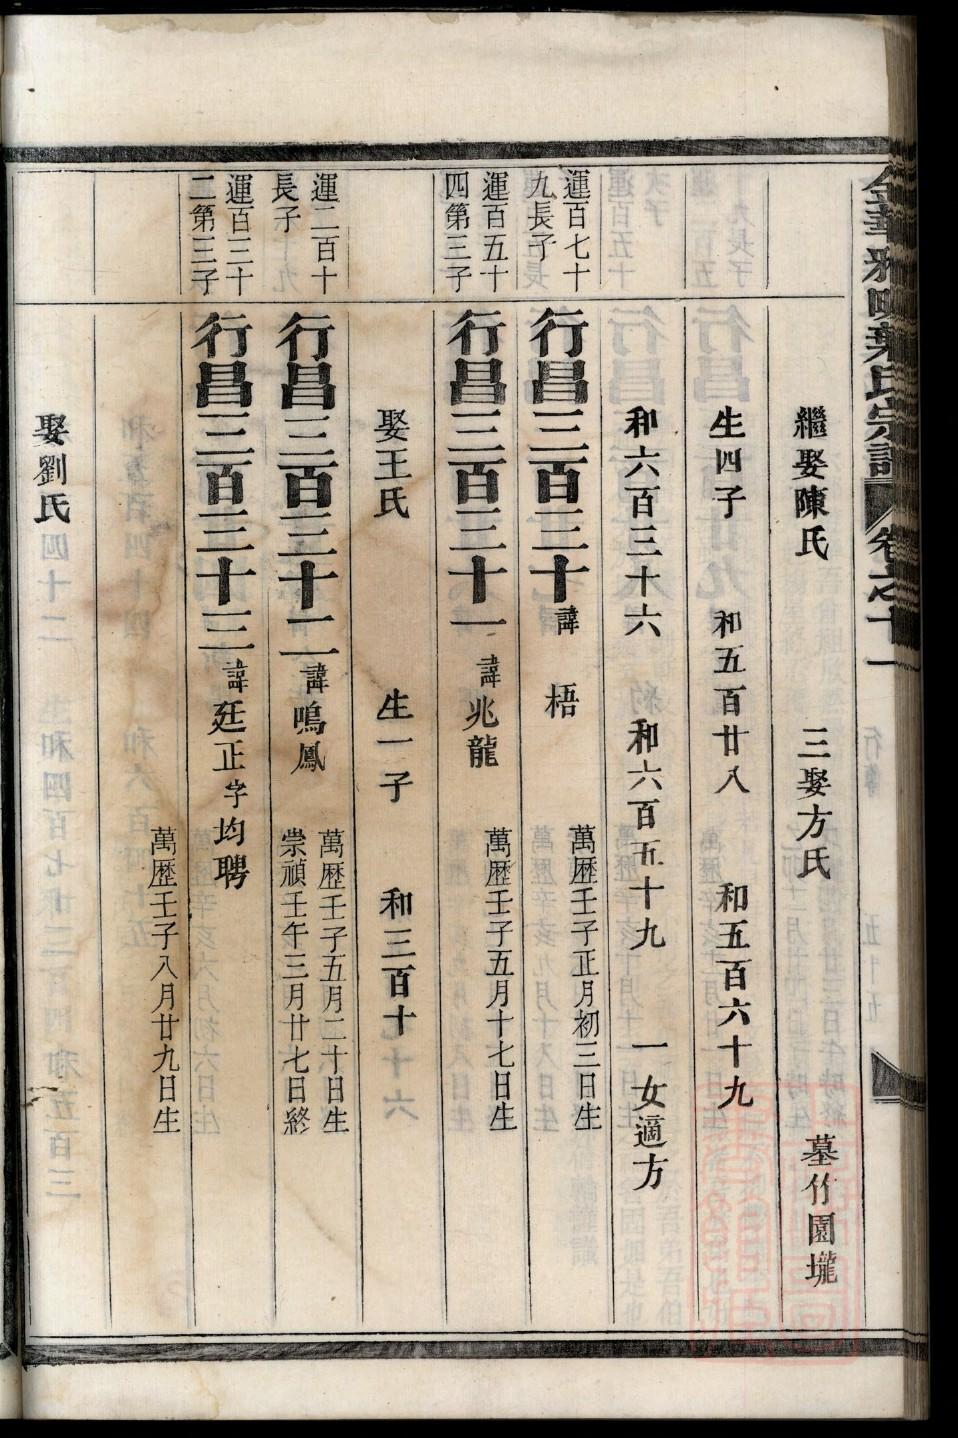 繼娶陳氏　三娶方氏　墓竹園壠
生四子　和五百廿八　和五百六十九
和六百三十六　和六百五十九　一女適方
運百七十九長子
行昌三百三十　諱　梧　萬歷壬子正月初三日生
運百五十四第三子
行昌三百三十一　諱兆龍　萬歷壬子五月十七日生
娶王氏　生一子　和三百十
運二百十長子
行昌三百三十二　諱鳴鳳　萬歷壬子五月二十日生
崇禎壬午三月廿七日終
運百三十二第三子
行昌三百三十三　諱廷正字均聘　萬歷壬子八月廿九日生
娶劉氏